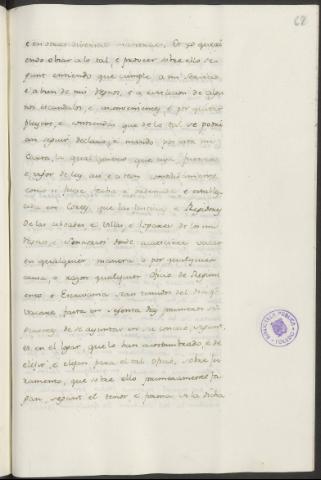 68
e en otras diversas maneras. Es yo queri
endo obviar a lo tal, e proveer sobre ello se
gunt entiendo que cumple a mi servicio,
e a bien de mis Regnos, e a evitacion de algu
nos escandalos e inconvenientes, e por quitar
pleytos, e contiendas que de lo tal se podri
an seguir, declaro, e mando por esta mi
Carta, la qual quiero que aya fuerza
e vigor de ley, asi e a tan complidamente
como si fuese fecha e ordenada e estable
cida en Cortes, que las Justicias e Regidores
de las cibdades e villas, e logares de los mis
Regnos, e Señorios donde acaesciere vacar
en qualquier manera o por qualquier
causa, e razon qualquier oficio de Regimi
ento, o Escrivania, sean tenudos del dia que
vacare, fasta tres dias primeros
siguientes de se ayuntar en su concejo, segunt,
es, en el logar, que lo han acostumbrado, e de
elegir, e elijan para el tal oficio, sobre ju
ramento, que sobre ello primeramente fa
gan, segunt el tenor e forma de la dicha
BIBLIOTECA PUBLICA
TOLEDO